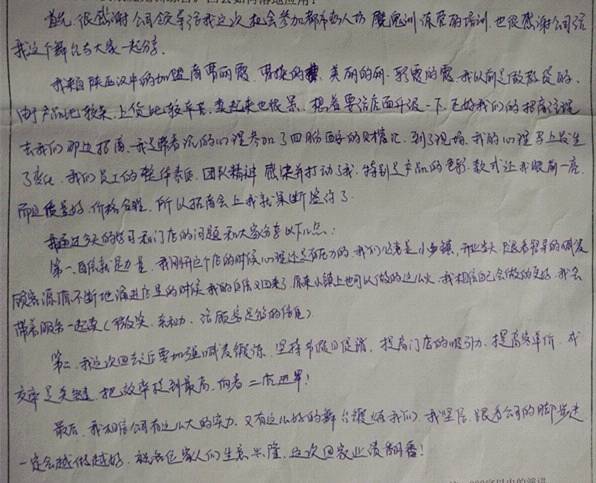 首先,很感谢公司领导给我这次机会参加都市丽人特魔鬼训练营的培训,也很感谢公司给
我这个舞台与大家一起分享。
我来自陕西汉中的加盟商曹丽霞,曹操的曹,美丽的丽,彩霞的霞,我以前是做散货的,
由于产品比较杂,上货比较辛苦,卖起来也很累,想着要给店面升级一下,正好我们的招商经理
去我们那边招商,我是带着玩的心理参加了四月西安的财富汇,到了现场,我的心理马上发生
了变化,我们员工的整体素质,团队精神感染并打动了我,特别是产品的色彩、款式让我眼前一亮,
而且质量好,价格合理,所以招商会上我就果断签约了。
我通过今天的学习和门店的问题和大家分享以下几点:
第一,自信就是力量,我刚开这个店的时候心理还是有压力的,我们这老是小乡镇,开业当天随着罗导的喊麦
顾客源源不断地涌进店里的时候我的自信又回来了,原来小镇上也可以做的这么火,我相信自己会做的更好,我会
带着服务一起卖(微笑、亲和力、给顾客足够的信息)
第二,我这次回去还要加强喊麦锻炼,坚持节假日促销,提高门店的吸引力,提高客单价,成
交率是关键,把效率提到最高,向着二店进军!
最后,我相信公司有这么大的实力,又有这么好的舞台锻炼我们,我坚信,跟着公司的脚步走
一定会越做越好,祝各位家人们生意兴隆,这次回家业绩翻番!